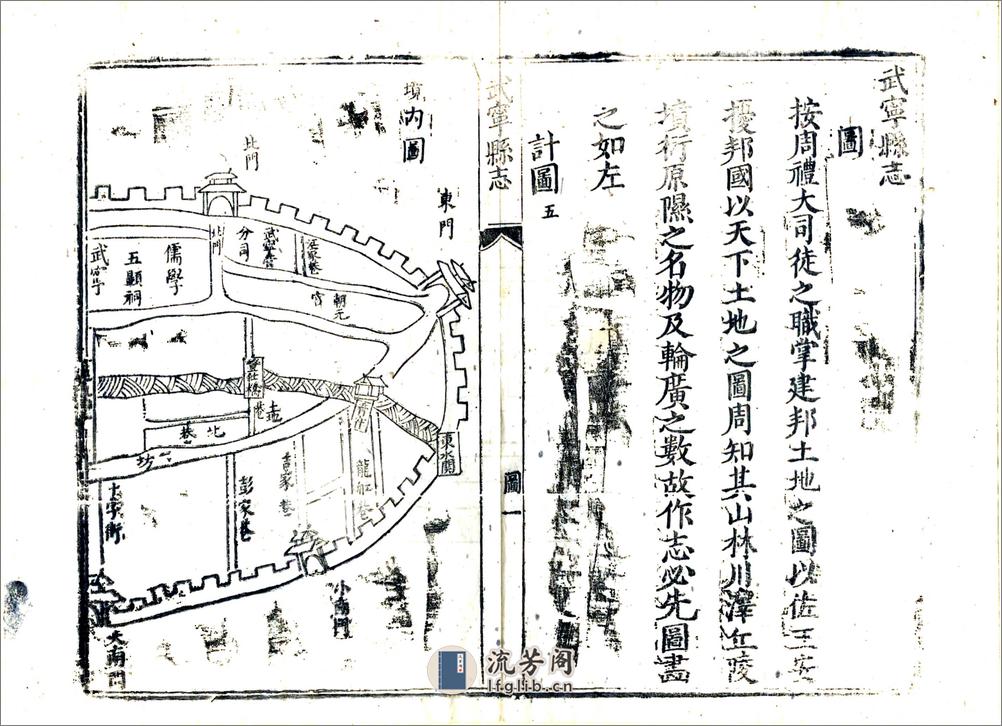 武寧縣志
圖
按周禮大司徒之職掌建邦土地之圖以佐王安
擾邦國以天下土地之圖周知其山林川澤丘陵
墳衍原隰之名物及輪廣之數故作志必先圖畫
之如左
計圖五
武寧縣志
圖一
境內圖
東門
北門
北門
分司
儒學
五顯祠
武寧
朝元宮
東水關
北巷
坊
龍船巷
吉家巷
彭家巷
十字街
小南門
大南門
流芳阁
lfglib.cn